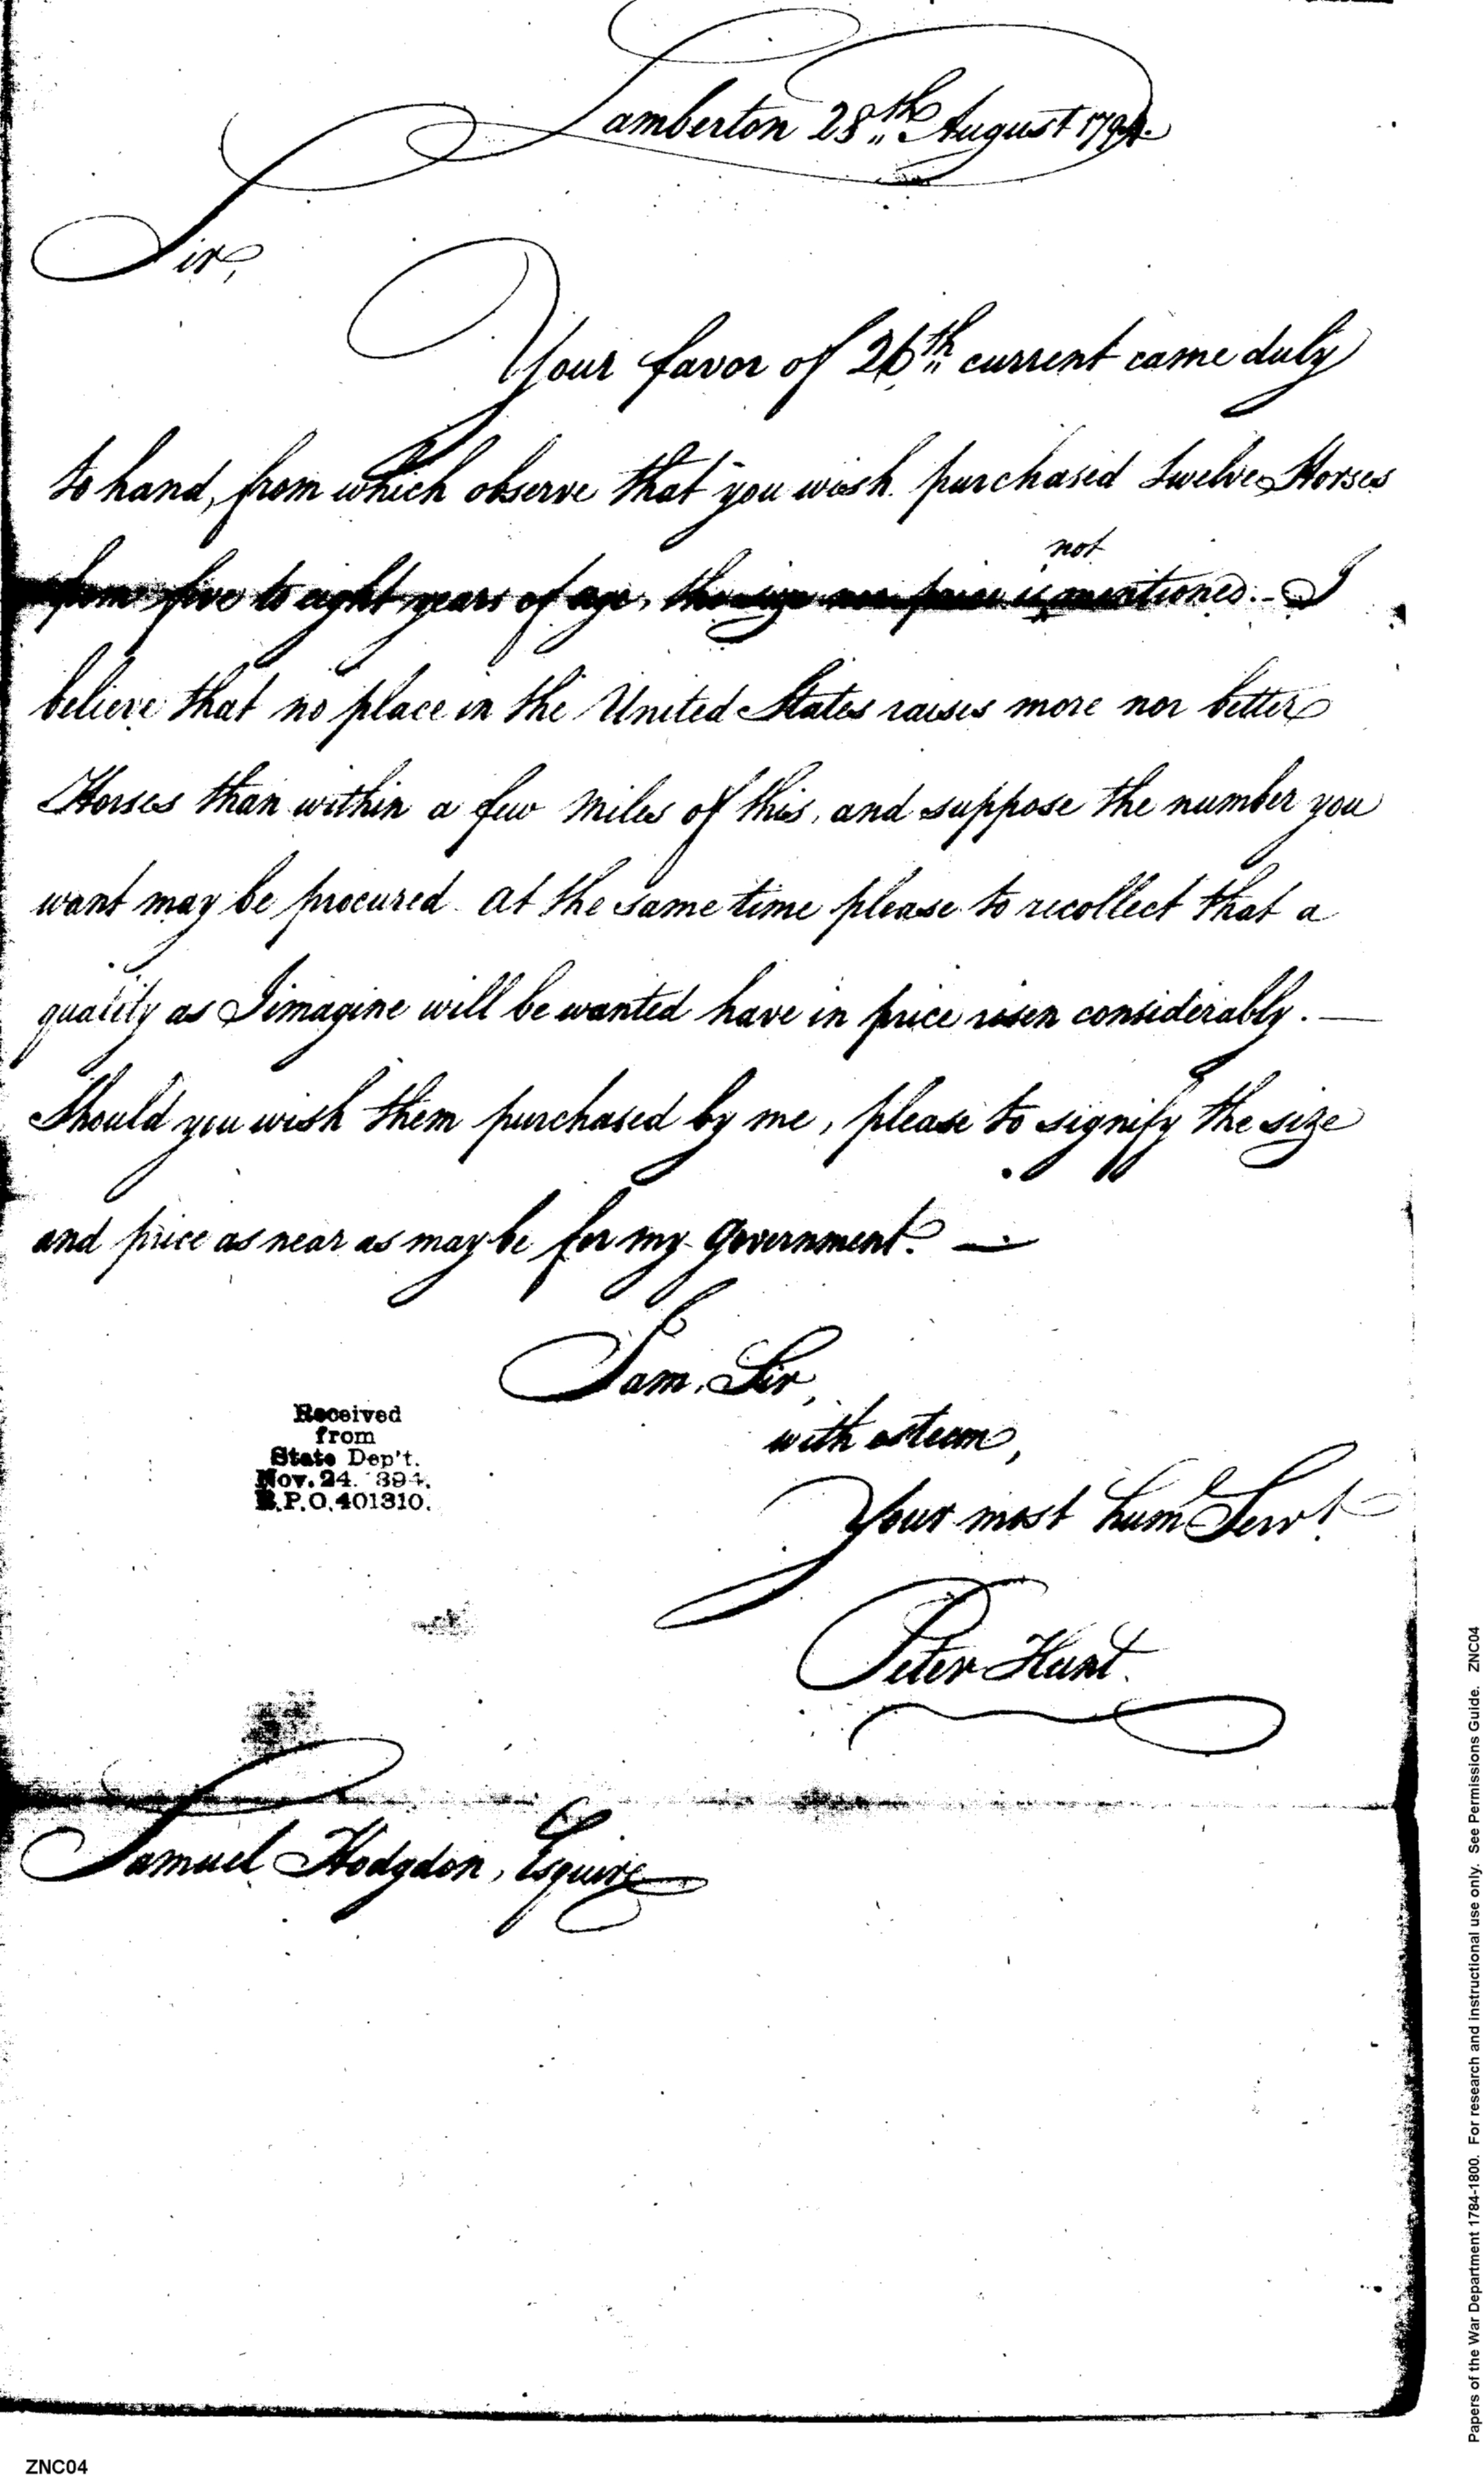 Lamberton 28th August 1794.
Sir,
Your favor of 26th current came duly
to hand, from which observe that you wish purchased twelve Horses
not
from five to eight years of age, the size nor price is mentioned. - I
believe that no place in the United States raises more nor better
Horses than within a few miles of this, and suppose the number you
want may be procured at the same time please to recollect that a
quality as I imagine will be wanted have in price risen considerably. —
Should you wish them purchased by me, please to signify the size
and price as near as may be for my government. —
I am, Sir,
with esteem,
Your most huml Servt
Peter Hunt.
Received
from
State Dep't.
Nov. 24. 1894.
R.P.O. 401310.
Samuel Hodgdon, Esquire
ZNC04
Papers of the War Department 1784-1800. For research and instructional use only. See Permissions Guide. ZNC04